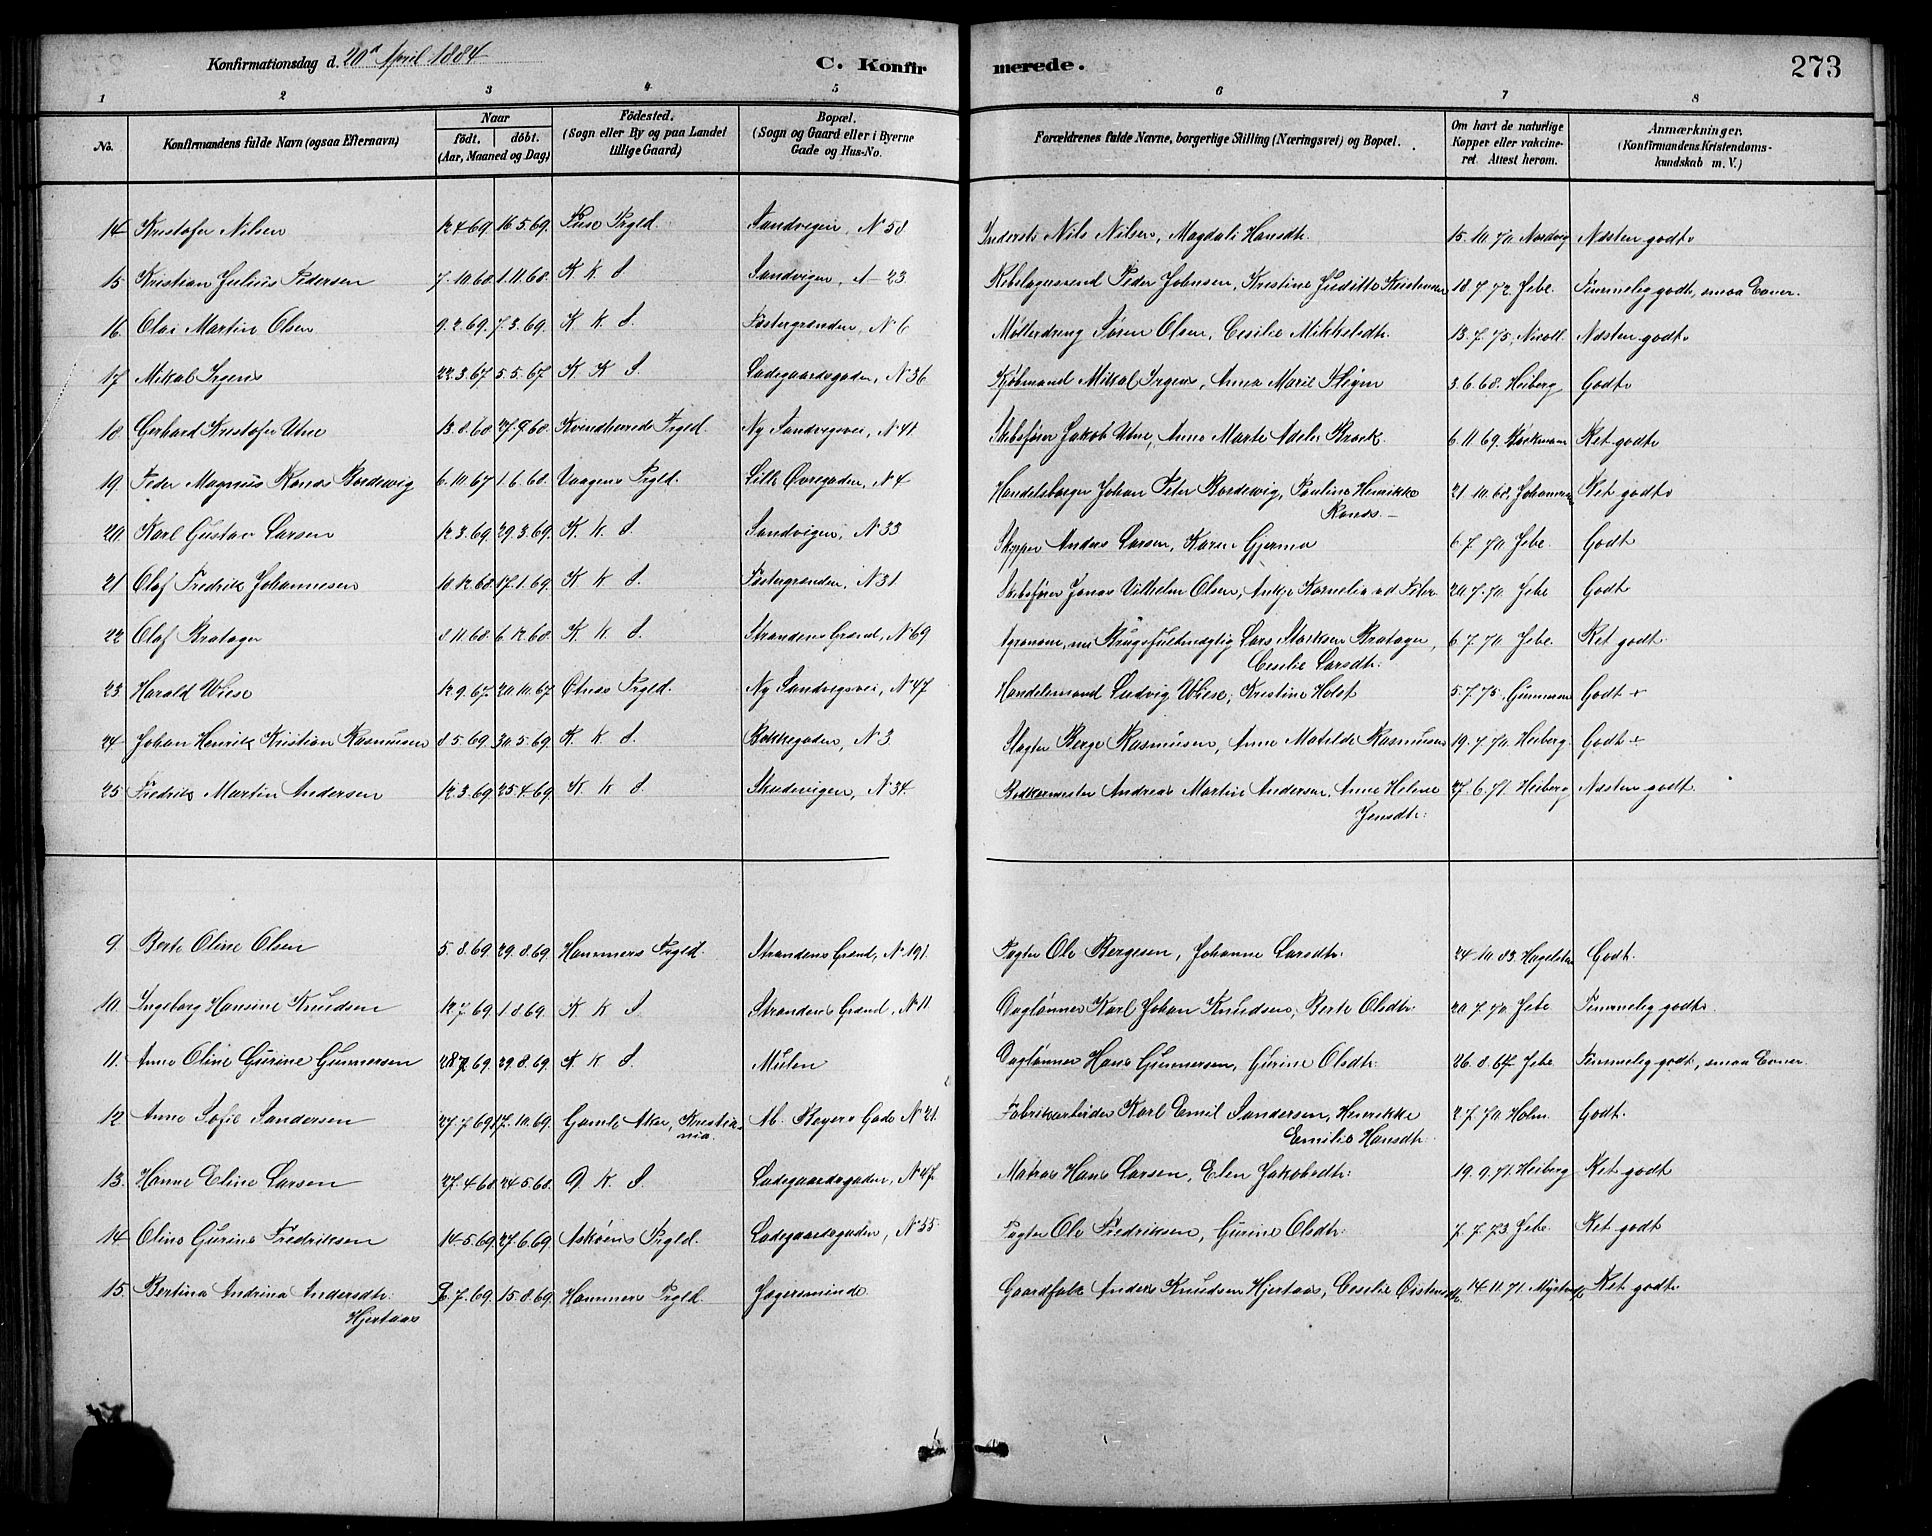 Konfirmationsdag d. 20de April 1884
C. Konfirmerede.
273
1 2 3 4 5 6 7 8
No.
Konfirmandens fulde Navn (ogsaa Efternavn)
Naar
födt. döbt.
(Aar, Maaned og Dag)
Födested.
(Sogn eller By og paa Landet
tillige Gaard)
Bopæl.
(Sogn og Gaard eller i Byerne
Gade og Hus-No.
Forældrenes fulde Navne, borgerlige Stilling (Næringsvei) og Bopæl.
Om havt de naturlige
Kopper eller vakcine-
ret. Attest herom.
Anmærkninger.
(Konfirmandens Kristendoms-
kundskab m. V.)
14 Kristofer Nilsen 12.4.69. 16.5.69. Fuse Prgld. Sandvigen, N 58 Inderst Nils Nilsen, Magdali Hansdtr. 15.10.70 Nordvig Næsten godt
15 Kristian Julius Pedersen 7.10.68. 1.11.68. K K S Sandvigen, A-23 Peder Johnsen, Kristine 18.7.72 Jebe. Temmelig godt, smaa Evner.
16. Olai Martin Olsen 9.2.69. 7.3.69. K. K. S. Føstergrænden, N 6 Møllerdreng Søren Olsen, Cecilie Mikkelsdtr. 13.7.75, Nicoll. Næsten godt
17 Mikal Irgens 22.3.67 5.5.67 K K S Ladegaardsgaden, N 36 Kjøbmand Mikal Irgens, Anna Marie 3.6.68. Heiberg Godt
18 Gerhard Kristofer Utne 13.8.68 27.9.68. Kvindherreds Prgld. Ny Sandvigsvei, N 41 Skibsfører Jakob Utne, Anne Marte Adele 6.11.69. Ret godt
19. Peder Magnus Konos Bordewig 6.10.67 1.6.68. Vaagens Prgld. Lille Øvregaden, N 4 Handelsborger Johan Peter Bordewig, Pauline Henrikke
Konos. 21.10.68. Ret godt
20. Karl Gustav Larsen 12.3.69. 29.3.69. K. K. S. Sandvigen, N 33 Skipper Anders Larsen, Karen Gjerma 6.7.70 Jebe. Godt
21 Olaf Fredrik Johannesen 10.12.68 17.1.69. K K S. Føstergrænden, N 31 Skibsfører Jonas Vilhelm Olsen, Antje Kornelia 20.7.70 Jebe Godt
22 Olaf Bratager 8.11.68. 6.12.68. K. K S. Strandens Grænd, N 69 Agronom, nu Brugsfuldmægtig Lars Bratager,
Cecilie Larsdtr: 6.7.70 Jebe. Ret godt
23. Harald Wiese 12.9.67. 20.10.67 Prgld. Ny Sandvigsvei, N 47 Handelsmand Ludvig Wiese, Kristine Holst 5.7.75, Godt +
24 Johan Henrik Kristian Rasmusen 8.5.69. 30.5.69. K K S. Bakkegaden, N 3 Slagter Berge Rasmusen, Anne Matilde Rasmusen 19.7.70. Heiberg. Godt +
25 Fredrik Martin Andersen 12.3.69. 25.4.69. K K S Skudevigen, N 34. Bødkermester Andreas Martin Andersen, Anne Helene
Jensdtr: 27.6.71. Heiberg Næsten godt.
9. Berte Oline Olsen 5.8.69. 29.8.69. Hammers Prgld. Strandens Grænd, N 191. Pagter Ole Bergesen, Johanne Larsdtr: 24.10.83. Godt.
10. Ingeborg Hansine Knudsen 12.7.69. 1.8.69. K K S Strandens Grænd, N 11 Daglønner Karl Johan Knudsen, Berte Olsdtr: 20.7.70 Jebe Temmelig godt.
11. Anne Oline Gurine Gunnersen 28.7.69. 29.8.69. K K S Mulen Daglønner Hans Gunnersen, Gurine Olsdtr: 26.8.67. Jebe Temmelig godt, smaa Evner.
12. Anne Sofie Sandersen 27.7.69. 17.10.69. Gamle Aker, Kristia-
nia. M. Beyers Gade N 21 Fabrikarbeider Karl Emil Sandersen, Henrikke
Emilie Hansdtr: 2.7.70 Holm. Godt.
13. Hanne Eline Larsen 27.4.68 24.5.68. D K S. Ladegaardsgaden, N 47. Matros Hans Larsen, Elen Jakobsdtr: 19.9.71. Heiberg Ret godt
14 Oline Gurine Fredriksen 14.5.69. 27.6.69. Askøens Prgld. Ladegaardsgaden, N 35 Pagter Ole Fredriksen, Gurine Olsdtr: 7.7.73. Jebe. Ret godt
15. Bertina Andrina Andersdtr:
Hjertaas 2.7.69. 15.8.69. Hammers Prgld. Jægersminde Gaardfolk Anders Knudsen Hjertaas, Cecilie 14.11.71. Ret godt